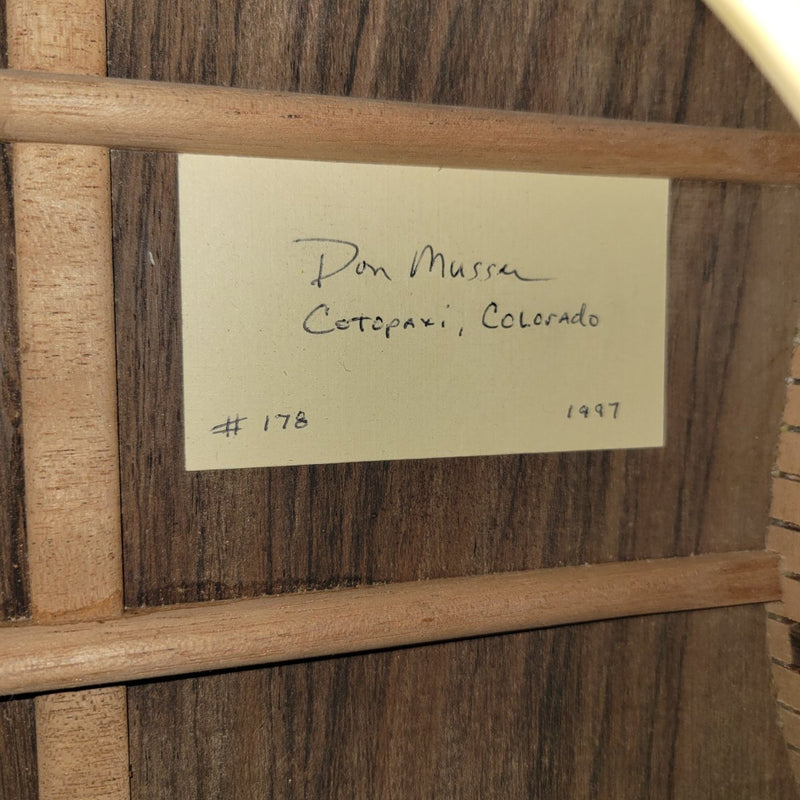 Don Musser
Cotopaxi, Colorado
# 178 1997